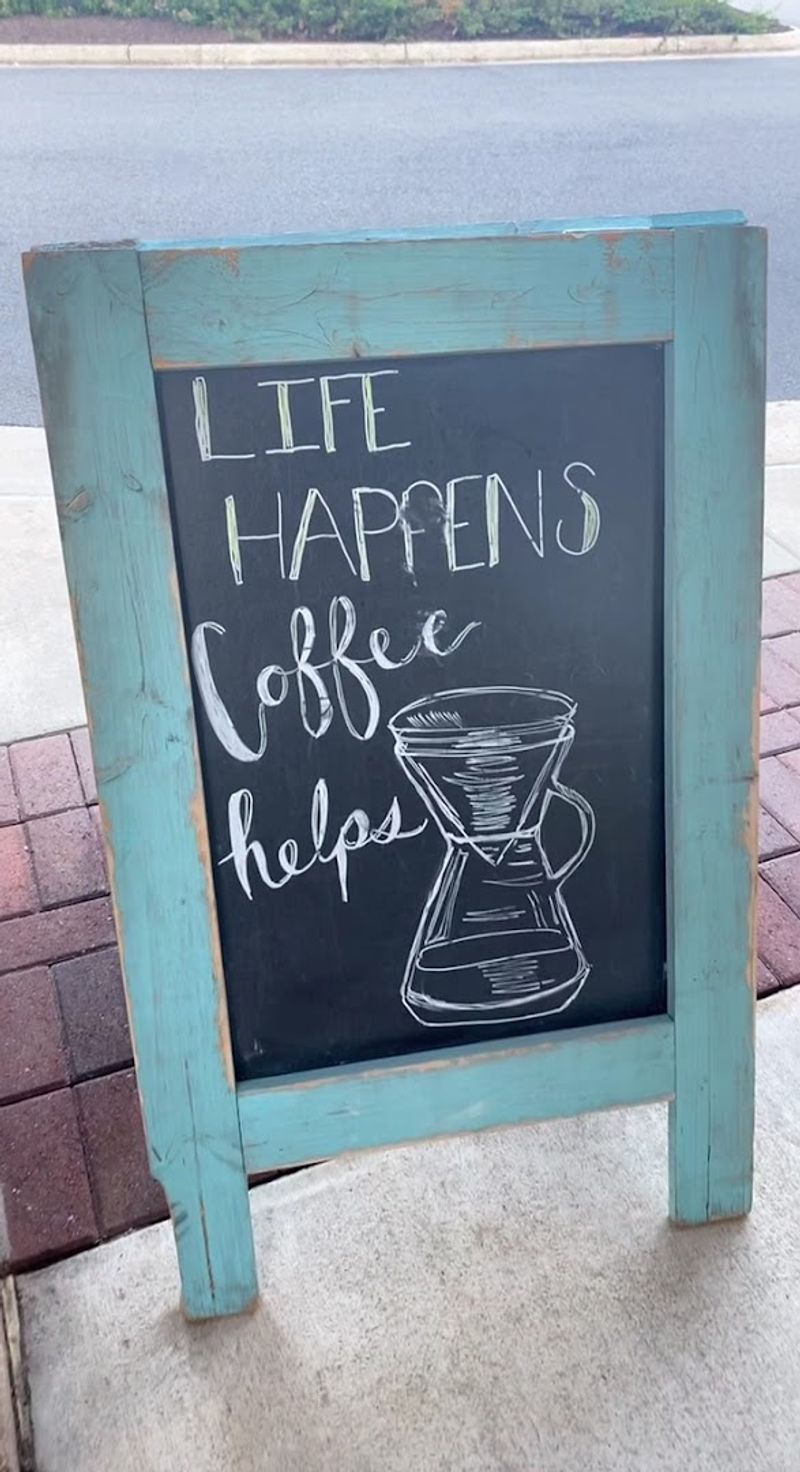 LIFE
HAPPENS
Coffee
helps